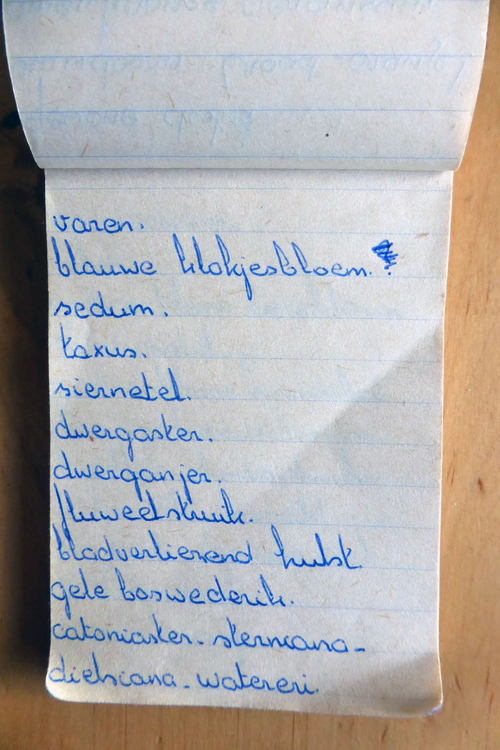 varen.
blauwe klokjesbloem.?
sedum.
taxus.
siernetel.
dwergaster.
dwerganjer.
fluweelstruik.
bladverliezend hulst
gele boswederik.
catoniaster - sterniana -
dielsiana - watereri.